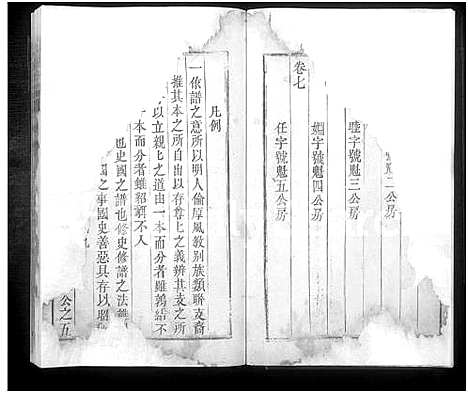 卷七
號二公房
睦字號魁三公房
婣字號魁四公房
任字號魁五公房
凡例
一依譜之意所以明人倫厚風教別族類聯支裔
推其本之所自出以存尊上之義辨其支之所
以立親上之道由一本而分者雖鶉結不
本而分者雖貂襇不入
也史國之譜也修史修譜之法
之事國史善惡具存以昭
公之五